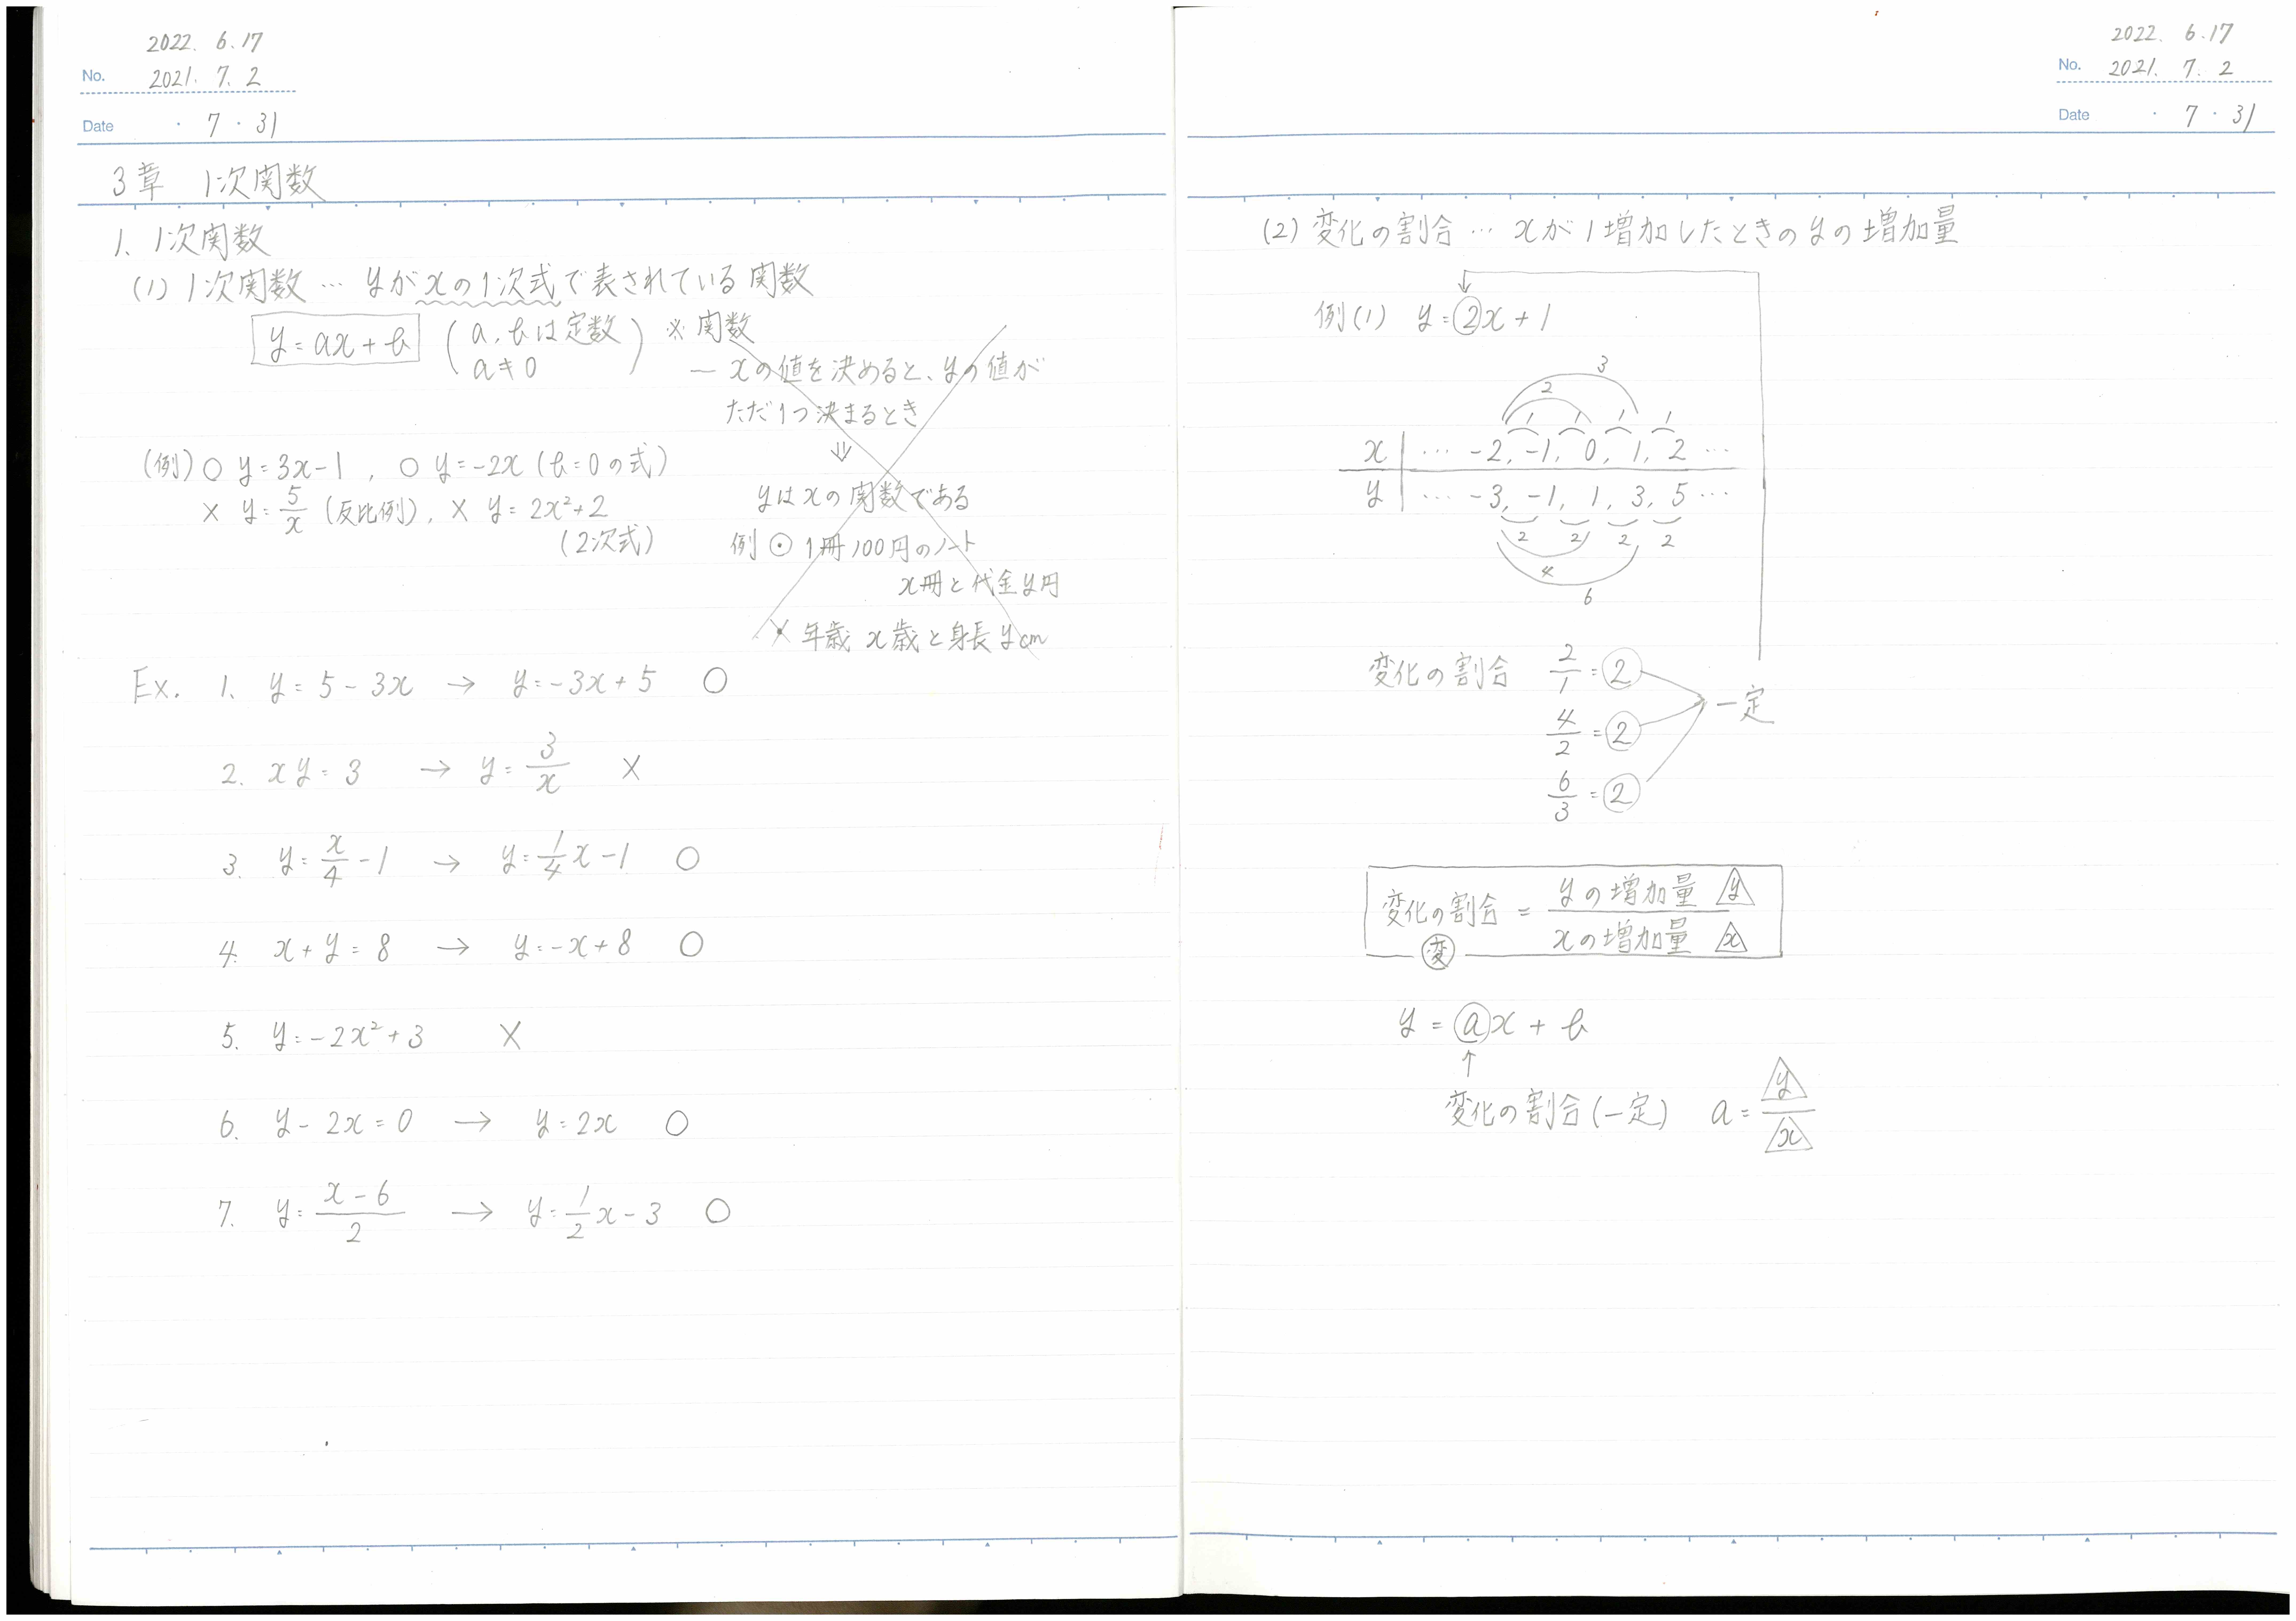 2022. 6.17
No. 2021. 7. 2
Date ・ 7 ・ 31
3章 1次関数
1. 1次関数
(1) 1次関数 … yがxの1次式で表されている関数
y=ax+b (a, bは定数 a≠0) ※関数
— xの値を決めると、yの値が
ただ1つ決まるとき
⇓
yはxの関数である
例 ⊙ 1冊100円のノート
x冊と代金y円
× 年歳 x歳と身長ycm
(例) ○ y=3x-1 , ○ y=-2x (b=0の式)
× y=5/x (反比例), × y=2x²+2
(2次式)
Ex. 1. y=5-3x → y=-3x+5 ○
2. xy=3 → y=3/x ×
3. y=x/4-1 → y=1/4x-1 ○
4. x+y=8 → y=-x+8 ○
5. y=-2x²+3 ×
6. y-2x=0 → y=2x ○
7. y=x-6/2 → y=1/2x-3 ○
2022. 6.17
No. 2021. 7. 2
Date ・ 7 ・ 31
(2) 変化の割合 … xが1増加したときのyの増加量
例(1) y=②x+1
3
2
1 1 1 1
x … -2, -1, 0, 1, 2 …
y … -3, -1, 1, 3, 5 …
2 2 2 2
4
6
変化の割合 2/1=②
4/2=② 一定
6/3=②
変化の割合 = yの増加量 y / xの増加量 x
変
y=ax+b
↑
変化の割合(一定) a=y/x